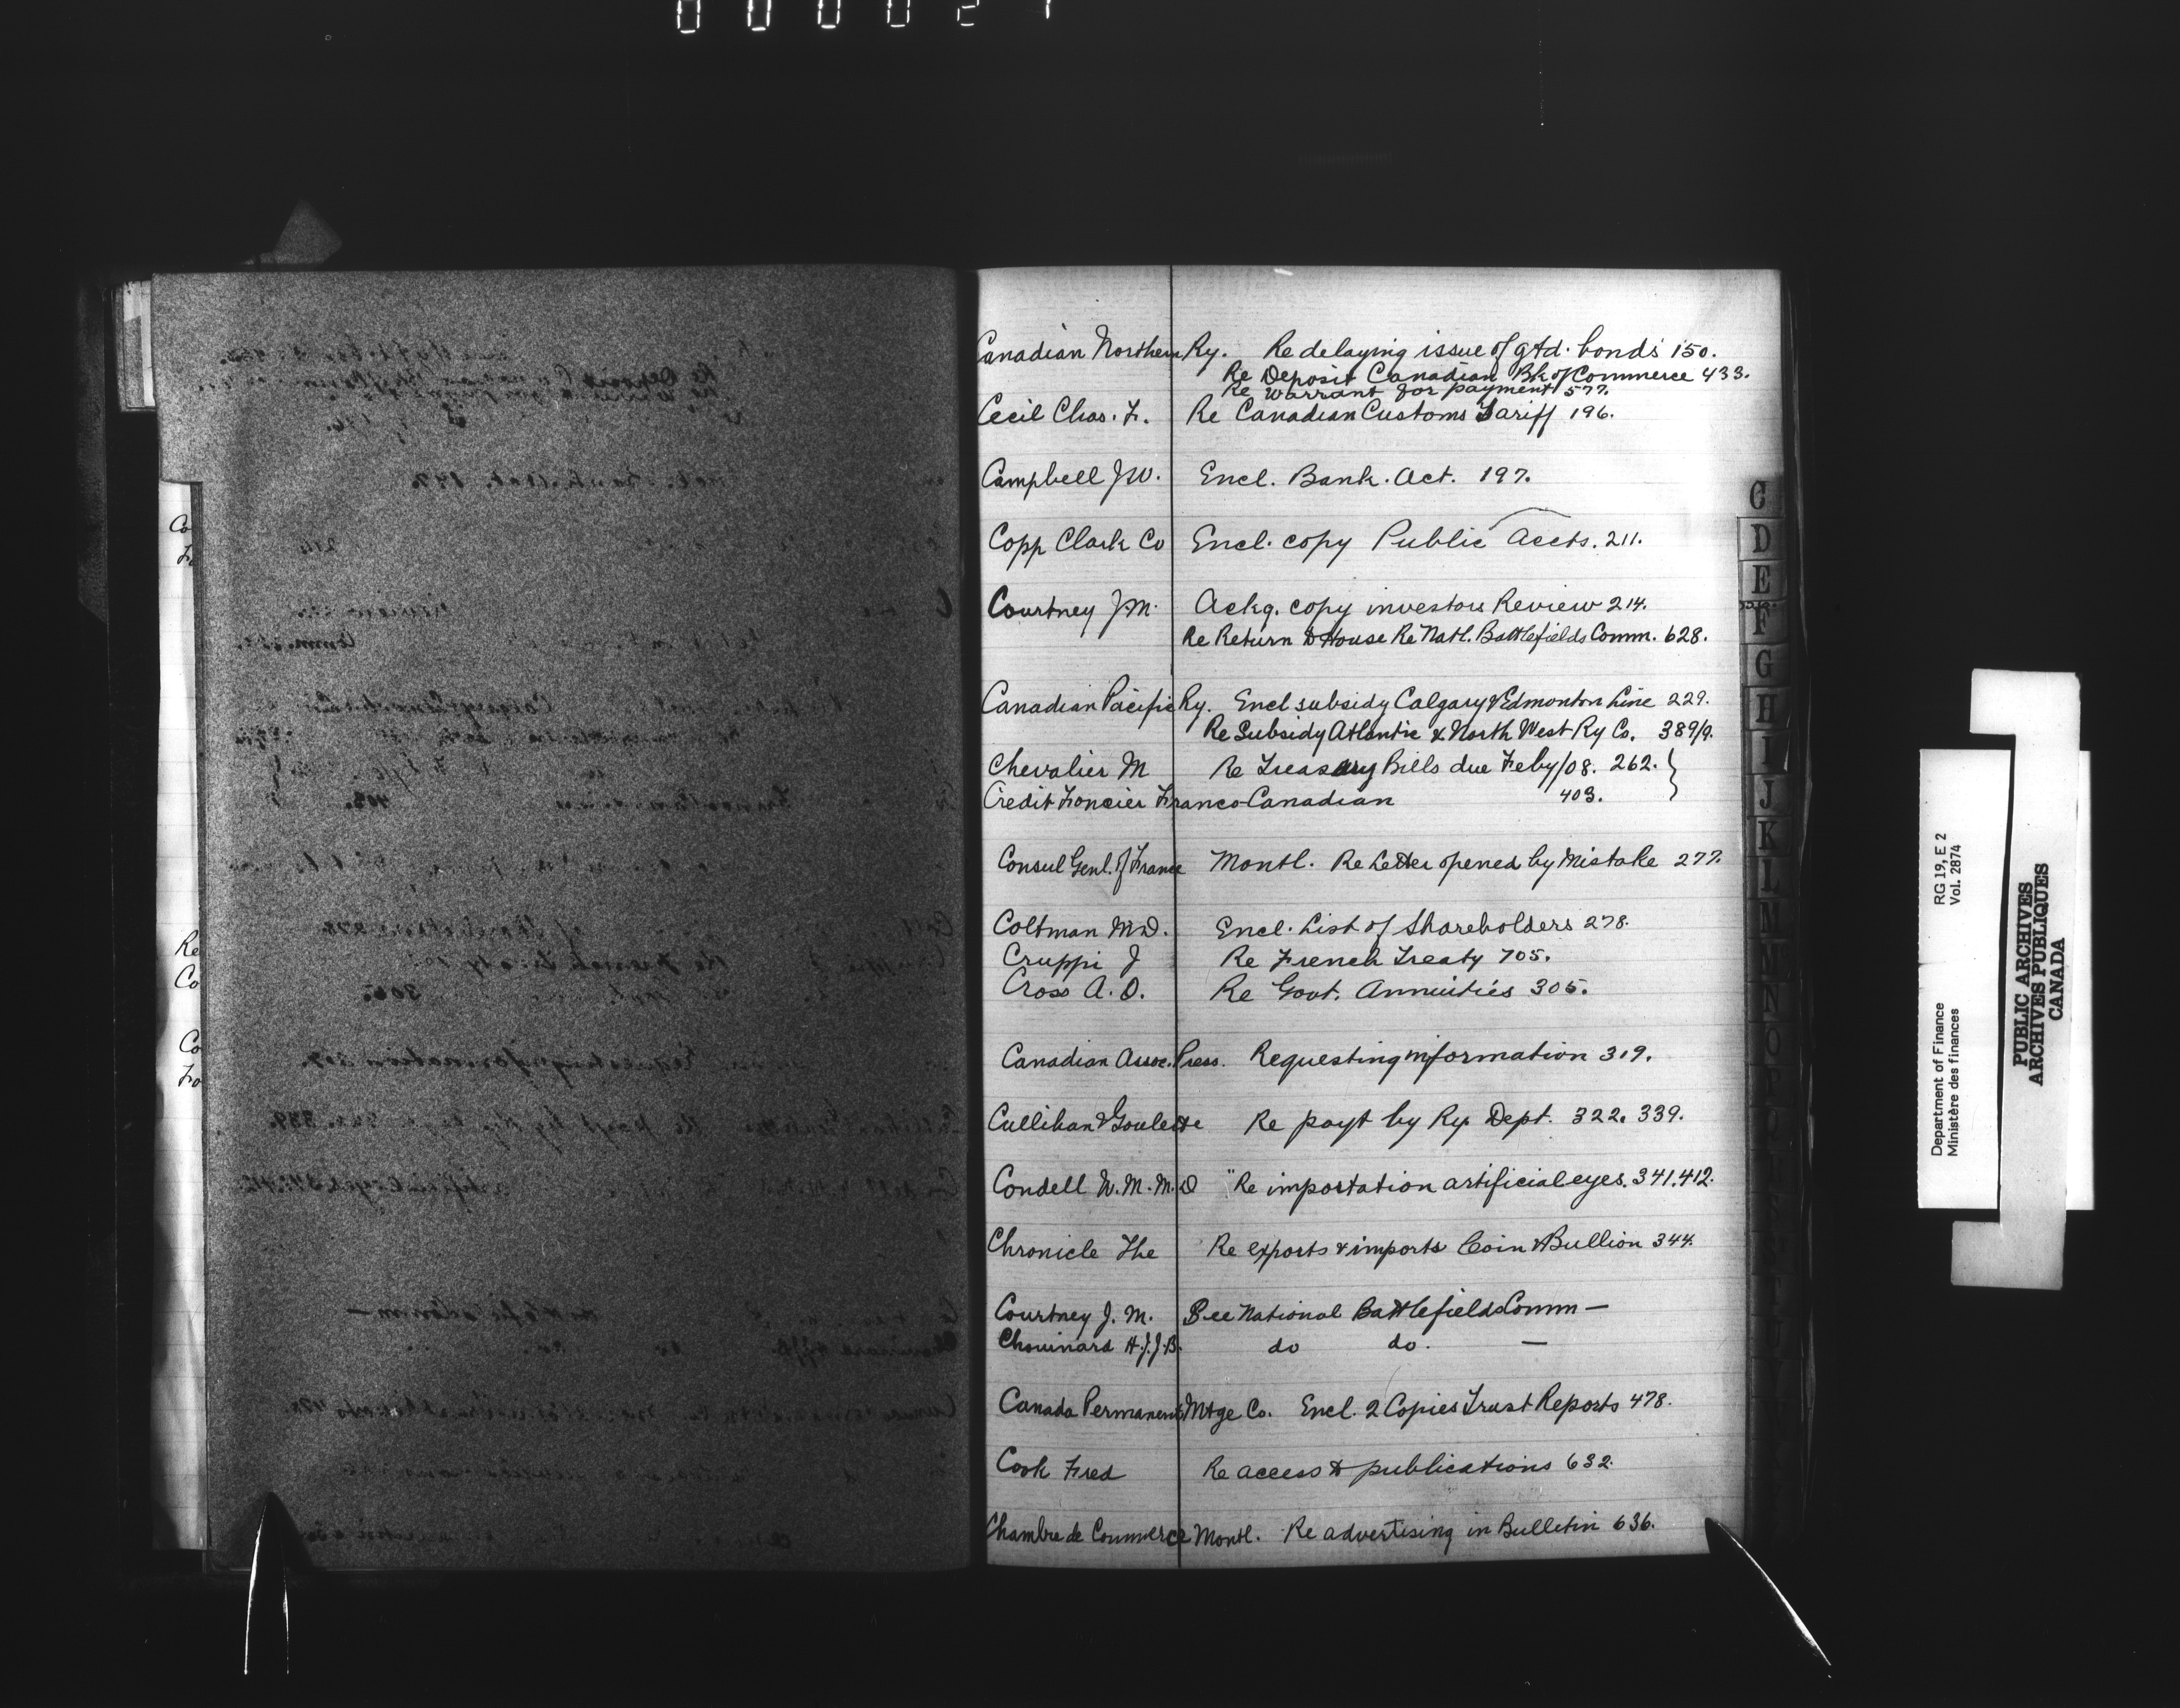 Canadian Northern Ry. Re delaying issue of gtd. bonds 150.
Re Deposit Canadian Bk of Commerce 433.
Re Warrant for payment 577.
Cecil Chas. F. Re Canadian Customs Tariff 196.
Campbell J W. Encl. Bank. Act. 197.
Copp Clark Co Encl. copy Public Accts. 211.
Courtney J M. Ackg. copy investors Review 214.
Re Return to House Re Natl. Battlefields Comm. 628.
Canadian Pacific Ry. Encl subsidy Calgary & Edmonton Line 229.
Re Subsidy Atlantic & North West Ry Co. 389/9.
Chevalier M Re Treasury Bills due Feby/08. 262.
Credit Foncier Franco-Canadian 403.
Consul Genl. of France Montl. Re Letter opened by Mistake 277.
Coltman W D. Encl. List of Shareholders 278.
Cruppi J Re French Treaty 705.
Cross A. O. Re Govt. Annuities 305.
Canadian Assoc. Press. Requesting information 319.
Cullihan & Goulette Re payt by Ry. Dept. 322. 339.
Condell W. M. M. D " Re importation artificial eyes. 341. 412.
Chronicle The Re exports & imports Coin & Bullion 344.
Courtney J. M. See National Battlefields Comm —
Chouinard H. J. J. B. do do. —
Canada Permanent Mtge Co. Encl. 2 Copies Trust Reports 478.
Cook Fred Re access to publications 632.
Chambre de Commerce Montl. Re advertising in Bulletin 636.
C
D
E
F
G
H
I
J
K
L
M
N
O
Co
Re
Co
Co
RG 19, E 2
Vol. 2874
Department of Finance
Ministère des finances
PUBLIC ARCHIVES
ARCHIVES PUBLIQUES
CANADA